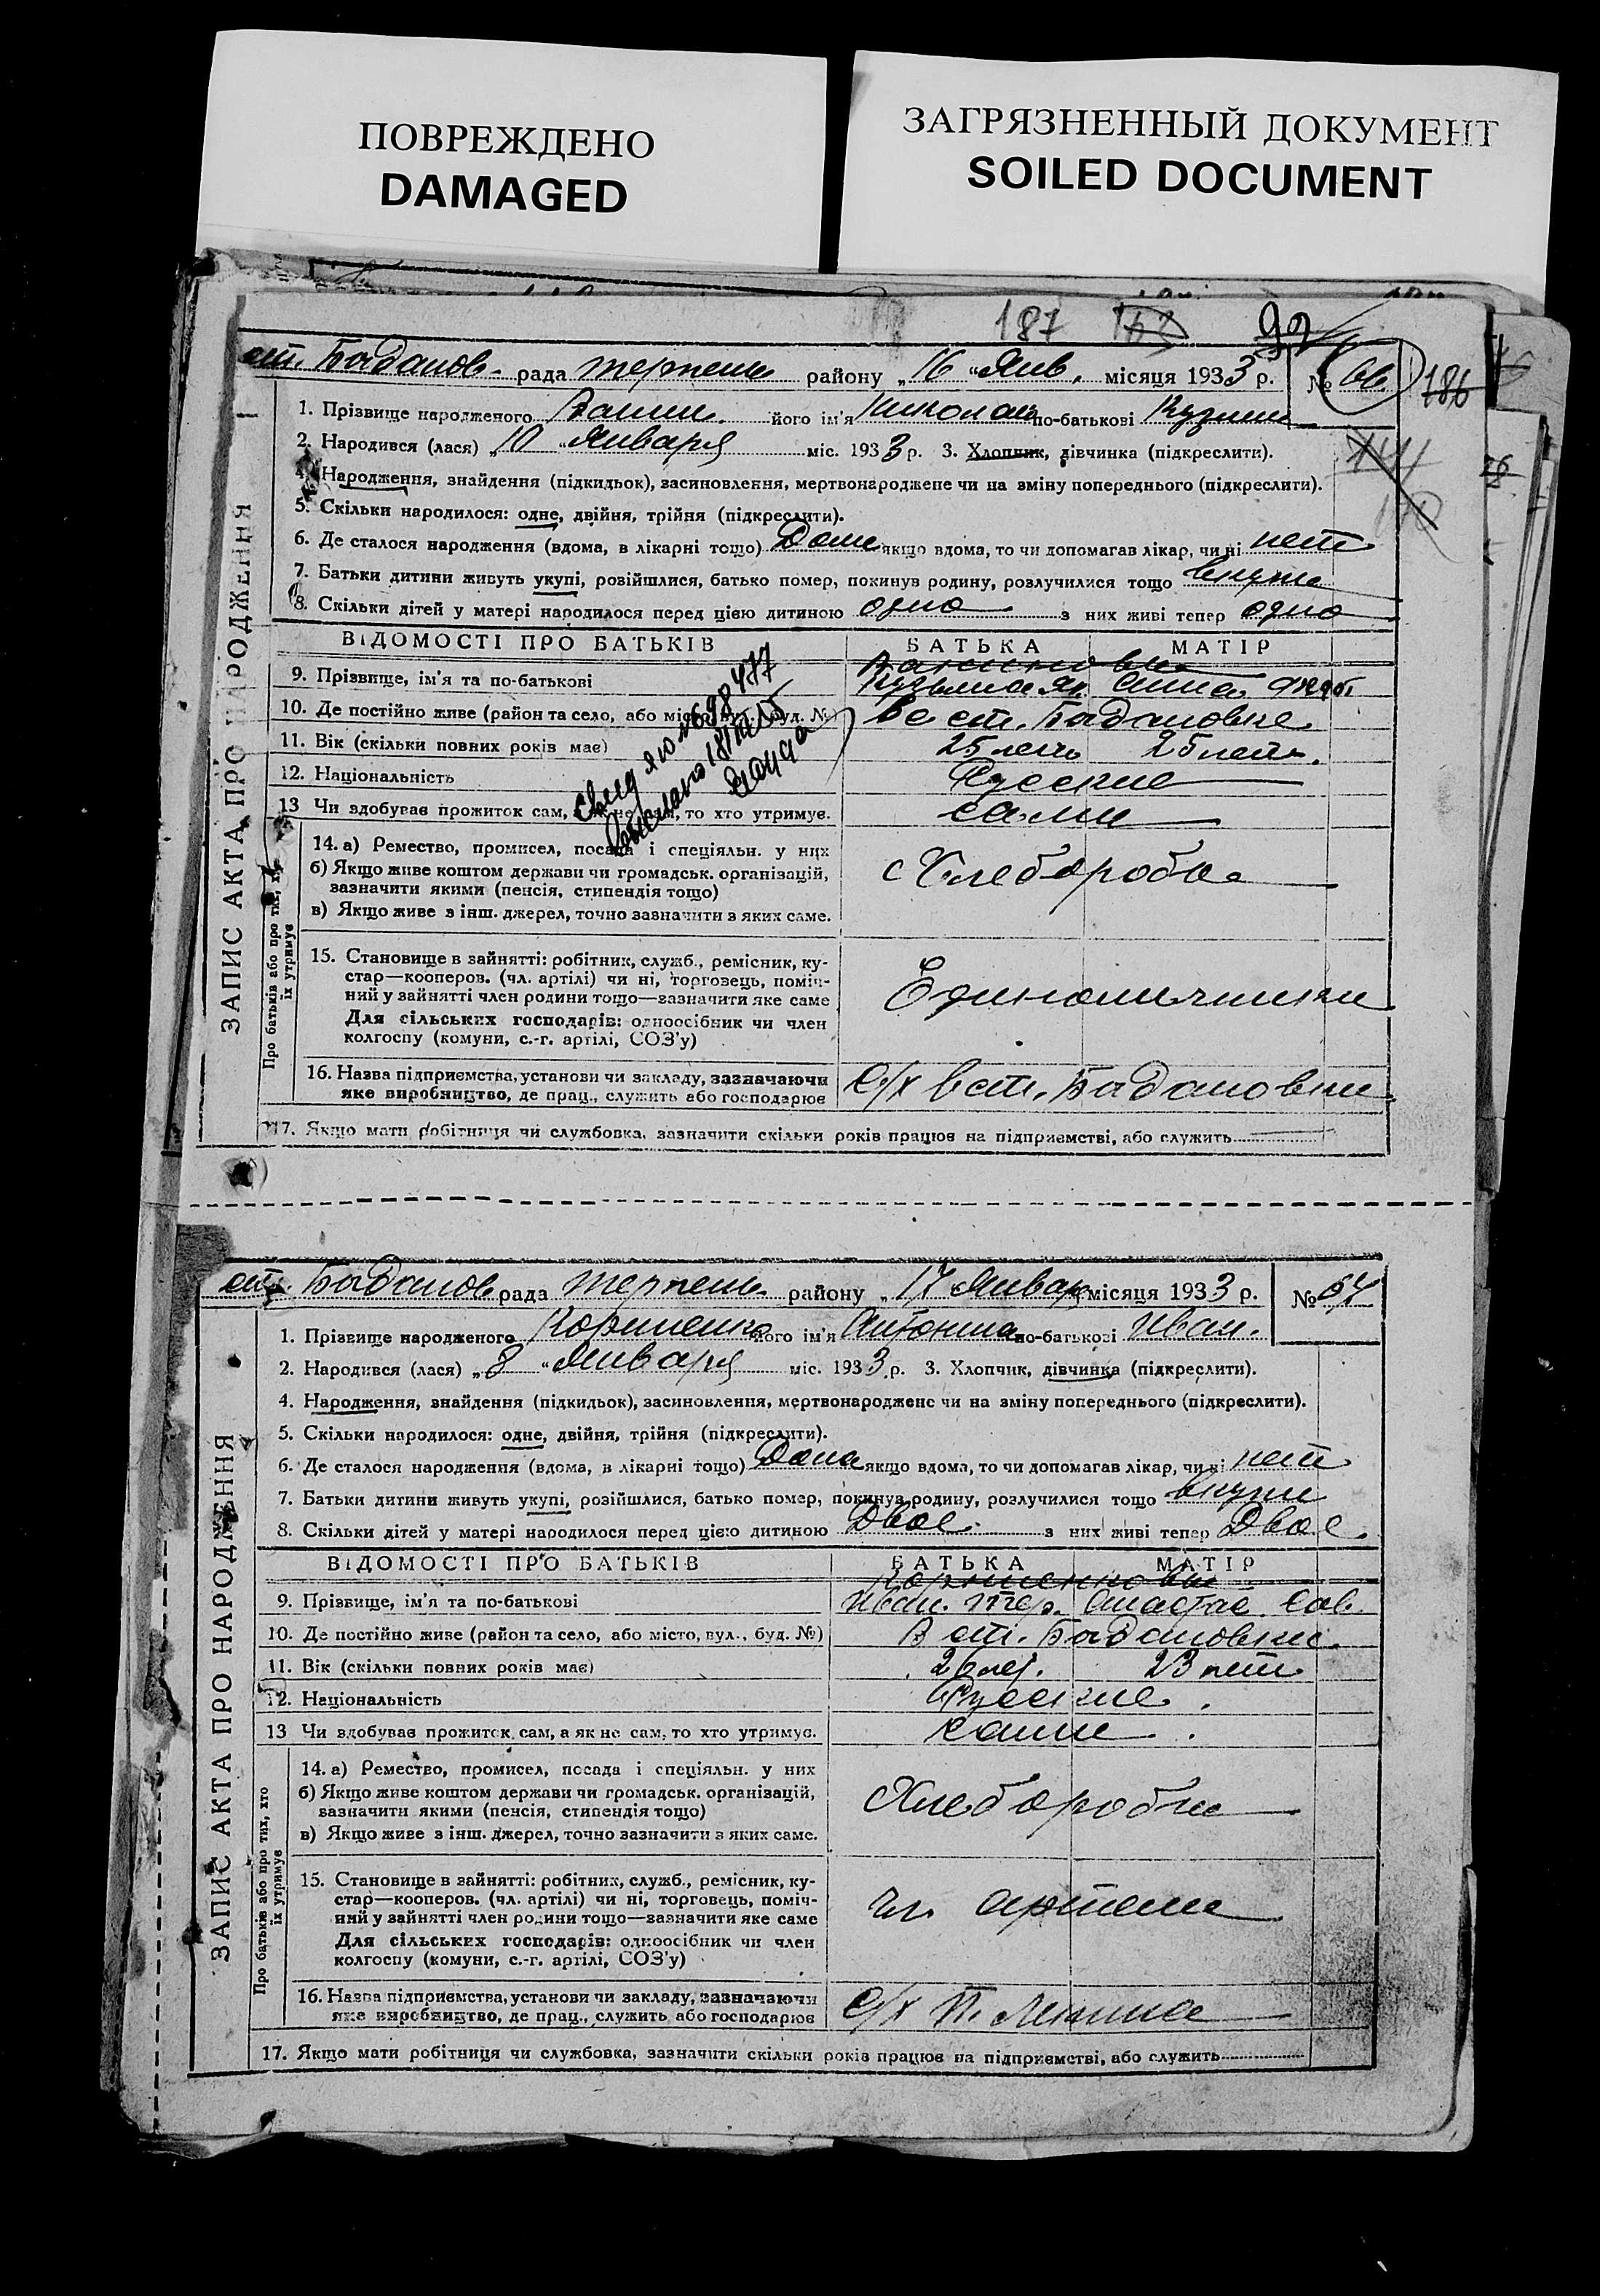 ПОВРЕЖДЕНО
DAMAGED
ЗАГРЯЗНЕННЫЙ ДОКУМЕНТ
SOILED DOCUMENT
187
ст. Богданов. рада Терпень району „16 “ Янв. місяця 1933 р. № 66 186
ЗАПИС АКТА ПРО НАРОДЖЕННЯ
1. Прізвище народженого його ім'я Николай по-батькові Кузьмич
2. Народився (лася) „10 “ Января міс. 1933 р. 3. Хлопчик, дівчинка (підкреслити).
4. Народження, знайдення (підкидьок), засиновлення, мертвонароджене чи на зміну попереднього (підкреслити).
5. Скільки народилося: одне, двійня, трійня (підкреслити).
6. Де сталося народження (вдома, в лікарні тощо) Дома якщо вдома, то чи допомагав лікар, чи ні нет
7. Батьки дитини живуть укупі, розійшлися, батько помер, покинув родину, розлучилися тощо вкупе
8. Скільки дітей у матері народилося перед цією дитиною одно з них живі тепер одно
ВІДОМОСТІ ПРО БАТЬКІВ БАТЬКА МАТІР
9. Прізвище, ім'я та по-батькові Кузьма Як. Анна
10. Де постійно живе (район та село, або місто, вул., буд. №) В ст. Богдановке
11. Вік (скільки повних років має) 25 лет 25 лет.
12. Національність Русские
13 Чи здобував прожиток сам, а як не сам, то хто утримує. сами
Про батьків або про тих, хто їх утримує
14. а) Ремество, промисел, посада і спеціяльн. у них
б) Якщо живе коштом держави чи громадськ. організацій, зазначити якими (пенсія, стипендія тощо) Хлеборобы
в) Якщо живе з інш. джерел, точно зазначити з яких саме.
15. Становище в зайнятті: робітник, служб., ремісник, ку-
стар—кооперов. (чл. артілі) чи ні, торговець, поміч-
ний у зайнятті член родини тощо—зазначити яке саме Единоличники
Для сільських господарів: одноосібник чи член
колгоспу (комуни, с.-г. артілі, СОЗ'у)
16. Назва підприємства, установи чи закладу, зазначаючи С/х в ст. Богдановке
яке виробництво, де прац., служить або господарює
17. Якщо мати робітниця чи службовка, зазначити скільки років працює на підприємстві, або служить
ст. Богданов рада Терпень. району „17 Январ місяця 1933 р. № 67
ЗАПИС АКТА ПРО НАРОДЖЕННЯ
1. Прізвище народженого його ім'я Антонина по-батькові Иван.
2. Народився (лася) „8 “ Января міс. 1933 р. 3. Хлопчик, дівчинка (підкреслити).
4. Народження, знайдення (підкидьок), засиновлення, мертвонароджене чи на зміну попереднього (підкреслити).
5. Скільки народилося: одне, двійня, трійня (підкреслити).
6. Де сталося народження (вдома, в лікарні тощо) Дома якщо вдома, то чи допомагав лікар, чи ні нет
7. Батьки дитини живуть укупі, розійшлися, батько помер, покинув родину, розлучилися тощо вкупе
8. Скільки дітей у матері народилося перед цією дитиною Двое з них живі тепер Двое
ВІДОМОСТІ ПРО БАТЬКІВ БАТЬКА МАТІР
9. Прізвище, ім'я та по-батькові Иван Анастас. Сав.
10. Де постійно живе (район та село, або місто, вул., буд. №) В ст. Богдановке
11. Вік (скільки повних років має) 26 лет. 23 лет
12. Національність Русские
13 Чи здобував прожиток сам, а як не сам, то хто утримує. сами
Про батьків або про тих, хто їх утримує
14. а) Ремество, промисел, посада і спеціяльн. у них
б) Якщо живе коштом держави чи громадськ. організацій, Хлеборобы
зазначити якими (пенсія, стипендія тощо)
в) Якщо живе з інш. джерел, точно зазначити з яких саме.
15. Становище в зайнятті: робітник, служб., ремісник, ку-
стар—кооперов. (чл. артілі) чи ні, торговець, поміч- чл. артели
ний у зайнятті член родини тощо—зазначити яке саме
Для сільських господарів: одноосібник чи член
колгоспу (комуни, с.-г. артілі, СОЗ'у)
16. Назва підприємства, установи чи закладу, зазначаючи С/х Ленина
яке виробництво, де прац., служить або господарює
17. Якщо мати робітниця чи службовка, зазначити скільки років працює на підприємстві, або служить